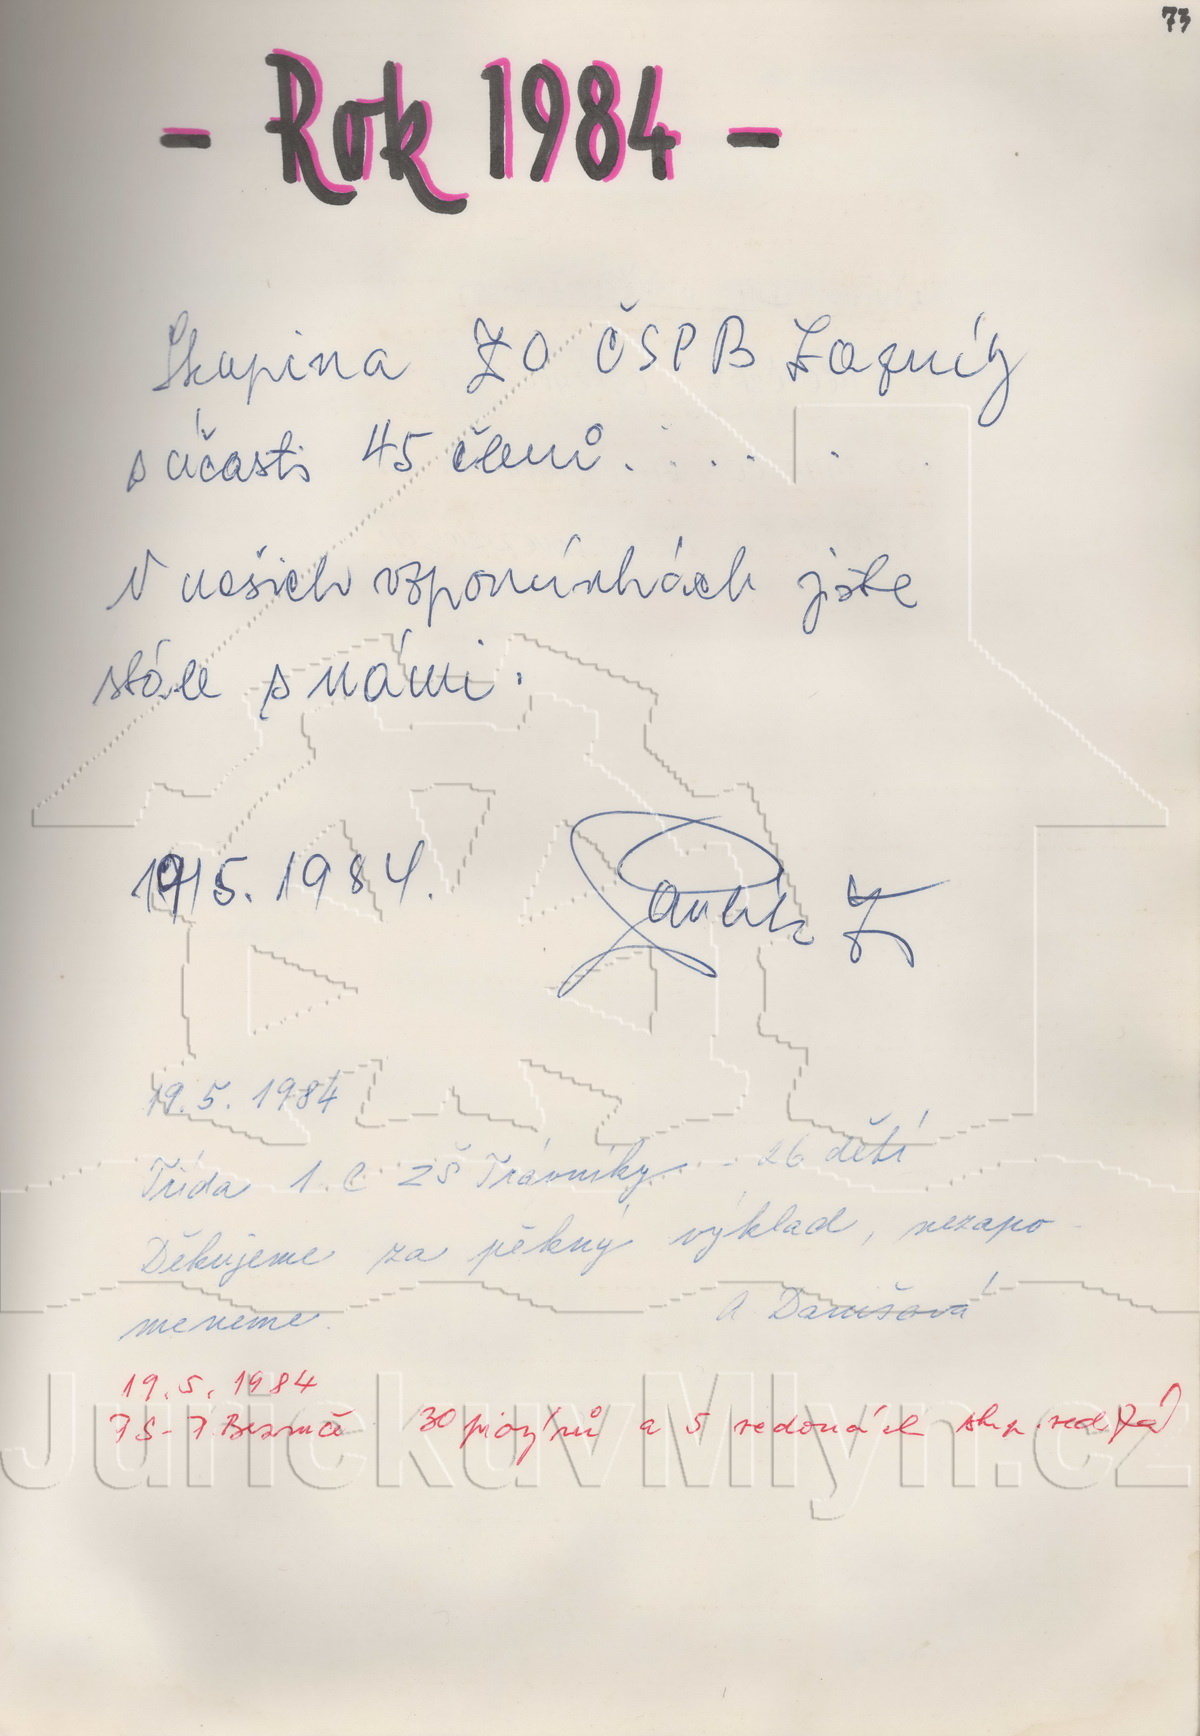 73
- Rok 1984 -
Skupina ZO ČSPB
s účasti 45 členů. . . . . .
V našich vzpomínkách jste
stále s námi.
19/5. 1984.
19. 5. 1984
Třída 1. C ZŠ Trávníky - 26 dětí
Děkujeme za pěkný výklad, nezapo-
meneme. A Darišová
19. 5. 1984
30 pionýrů a 5 vedoucích skp. ved.
JuříčkůvMlýn.cz